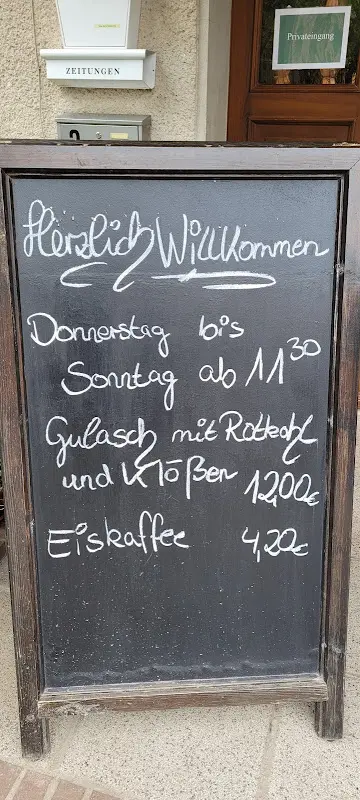 ZEITUNGEN
Privateingang
2
Herzlich Willkommen
Donnerstag bis
Sonntag ab 11³⁰
Gulasch mit Rotkohl
und Klößen 12,00€
Eiskaffee 4,20€